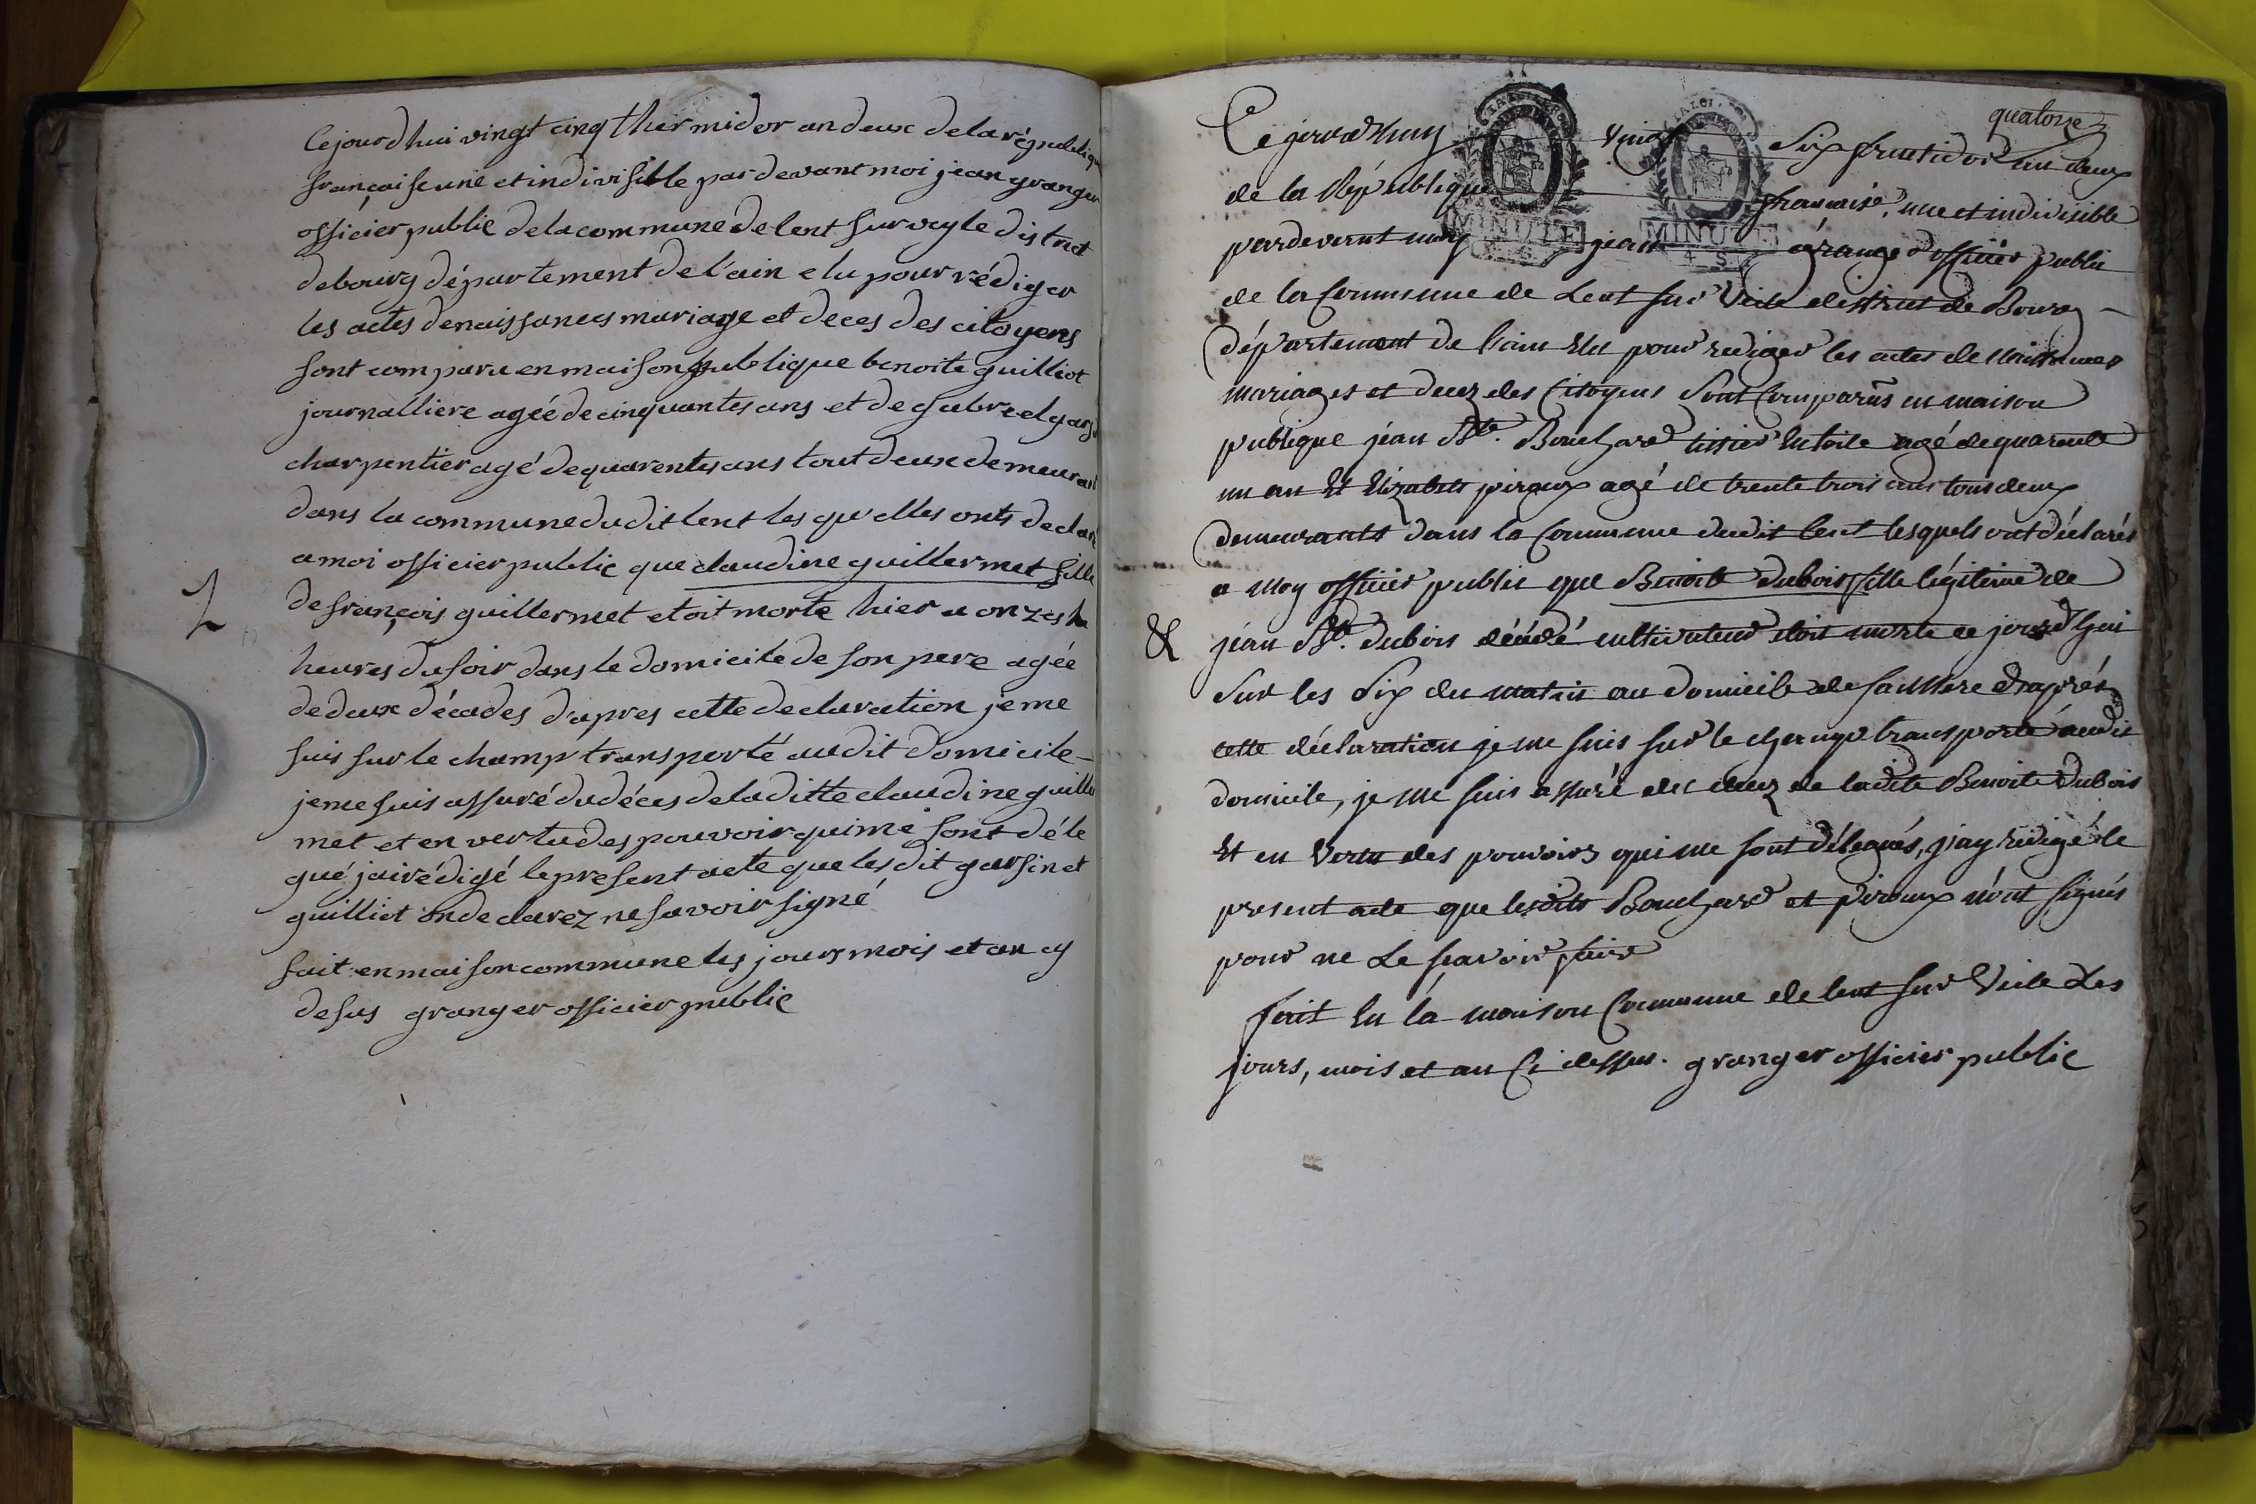 Cejourdhui vingt cinq thermidor an deux de la républiqu
française une et indivisible par devant moi jean granger
officier public de la commune de lent sur veyle district
de bourg département de l'ain elu pour rédiger
les actes de naissances mariage et deces des citoyens
sont comparu en maison publique benoite guilliot
journalliere agée de cinquantes ans et de gabriel garsi
charpentier agé de quarentes ans tout deux demeurant
dans la commune du dit lent les qu'elles onts declaré
a moi officier public que claudine guillermet fille
de françois guillermet etoit morte hier a onzes h
heures du soir dans le domicile de son pere agée
de deux décades d'apres cette declaration je me
suis sur le champ transporté au dit domicile
je me suis assuré du déces de la ditte claudine guiller
met et en vertu des pouvoir qui me sont déle
gué j'ai rédigé le present acte que les dit garsin et
guilliot on declarez ne savoir signé
fait en maison commune les jours mois et an cy
desus granger officier public
quatorze
Ce jourd'huy vingt Six fructidor an deux
de la République française, une et indivisible
pardevant moy jean granger officier public
de la Commune de Lent sur Veile district de Bourg
département de l'ain Elu pour rediger les actes de Naissances
mariages et decez des Citoyens Sont Comparus en maison
publique jean Bte. Bouchard tissier En toile agé de quarante
un an Et Elizabeth piroux agé de trente trois ans tous deux
demeurants dans la Commune dudit lent lesquels ont déclarés
a moy officier public que Benoite dubois fille légitime de
& jean Bte. dubois décédé cultivateur etoit morte ce jourd'hui
Sur les Six du matin au domicile de sa Mere d'aprés
cette déclaration je me suis sur le champ transporté audit
domicile, je me suis assuré du decez de ladite Benoite Dubois
Et en Vertu des pouvoirs qui me sont délegués, j'ay redigé le
present acte que lesdits Bouchard et Piroux n'ont signés
pour ne Le scavoir faire
fait En la maison Commune de lent sur Veile Les
jours, mois et an Ci dessus. granger officier public
MINUTE
MINUTE
4 S